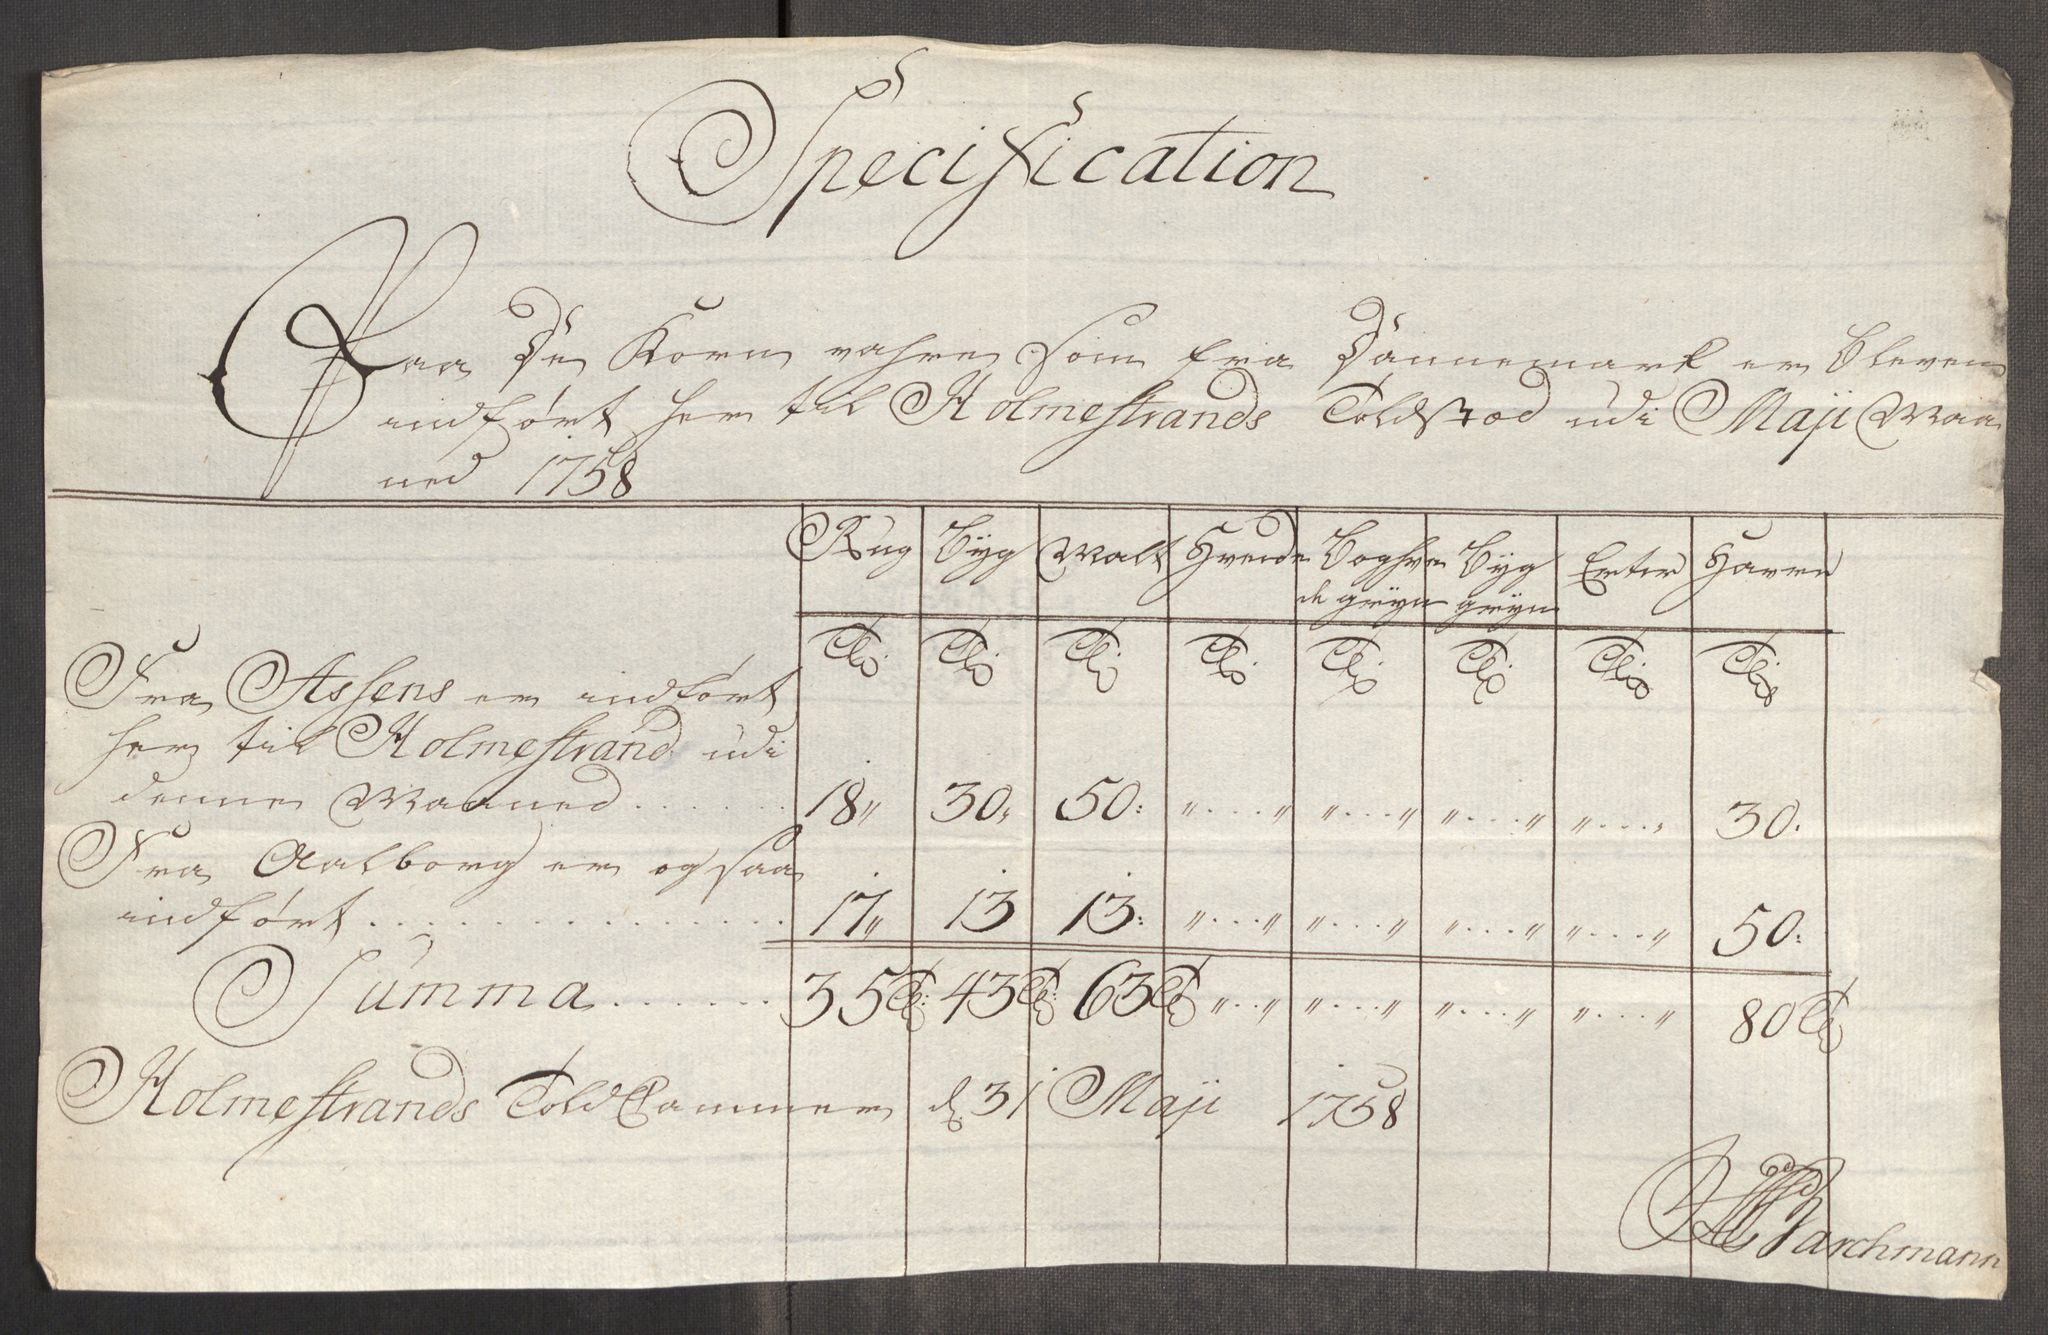 Specification
Paa De Korn vahre Som fra Dannemark er Bleven
indført her til Holmestrands Toldsted udi Maji Maa
ned 1758
Rug Byg Malt Hvede Boghve Byg Erter Havre
de gryn gryn
Tdr Tdr Tdr Tdr Tdr Tdr Tdr Tdr
Fra Assens er indført
her til Holmestrand udi
denne Maaned . . . . . . 18„ 30„ 50: „...„ „...„ „...„ „...„ 30.
Fra Aalborg er og saa
indført . . . . . . . . . . . . 17„ 13 13: „...„ „...„ „...„ „...„ 50:
Summa . . . . . . 35 Tdr 43 Tdr 63 Tdr „...„ „...„ „...„ „...„ 80 Tdr
Holmestrands Told Cammer d. 31 Maji 1758
Parchmann